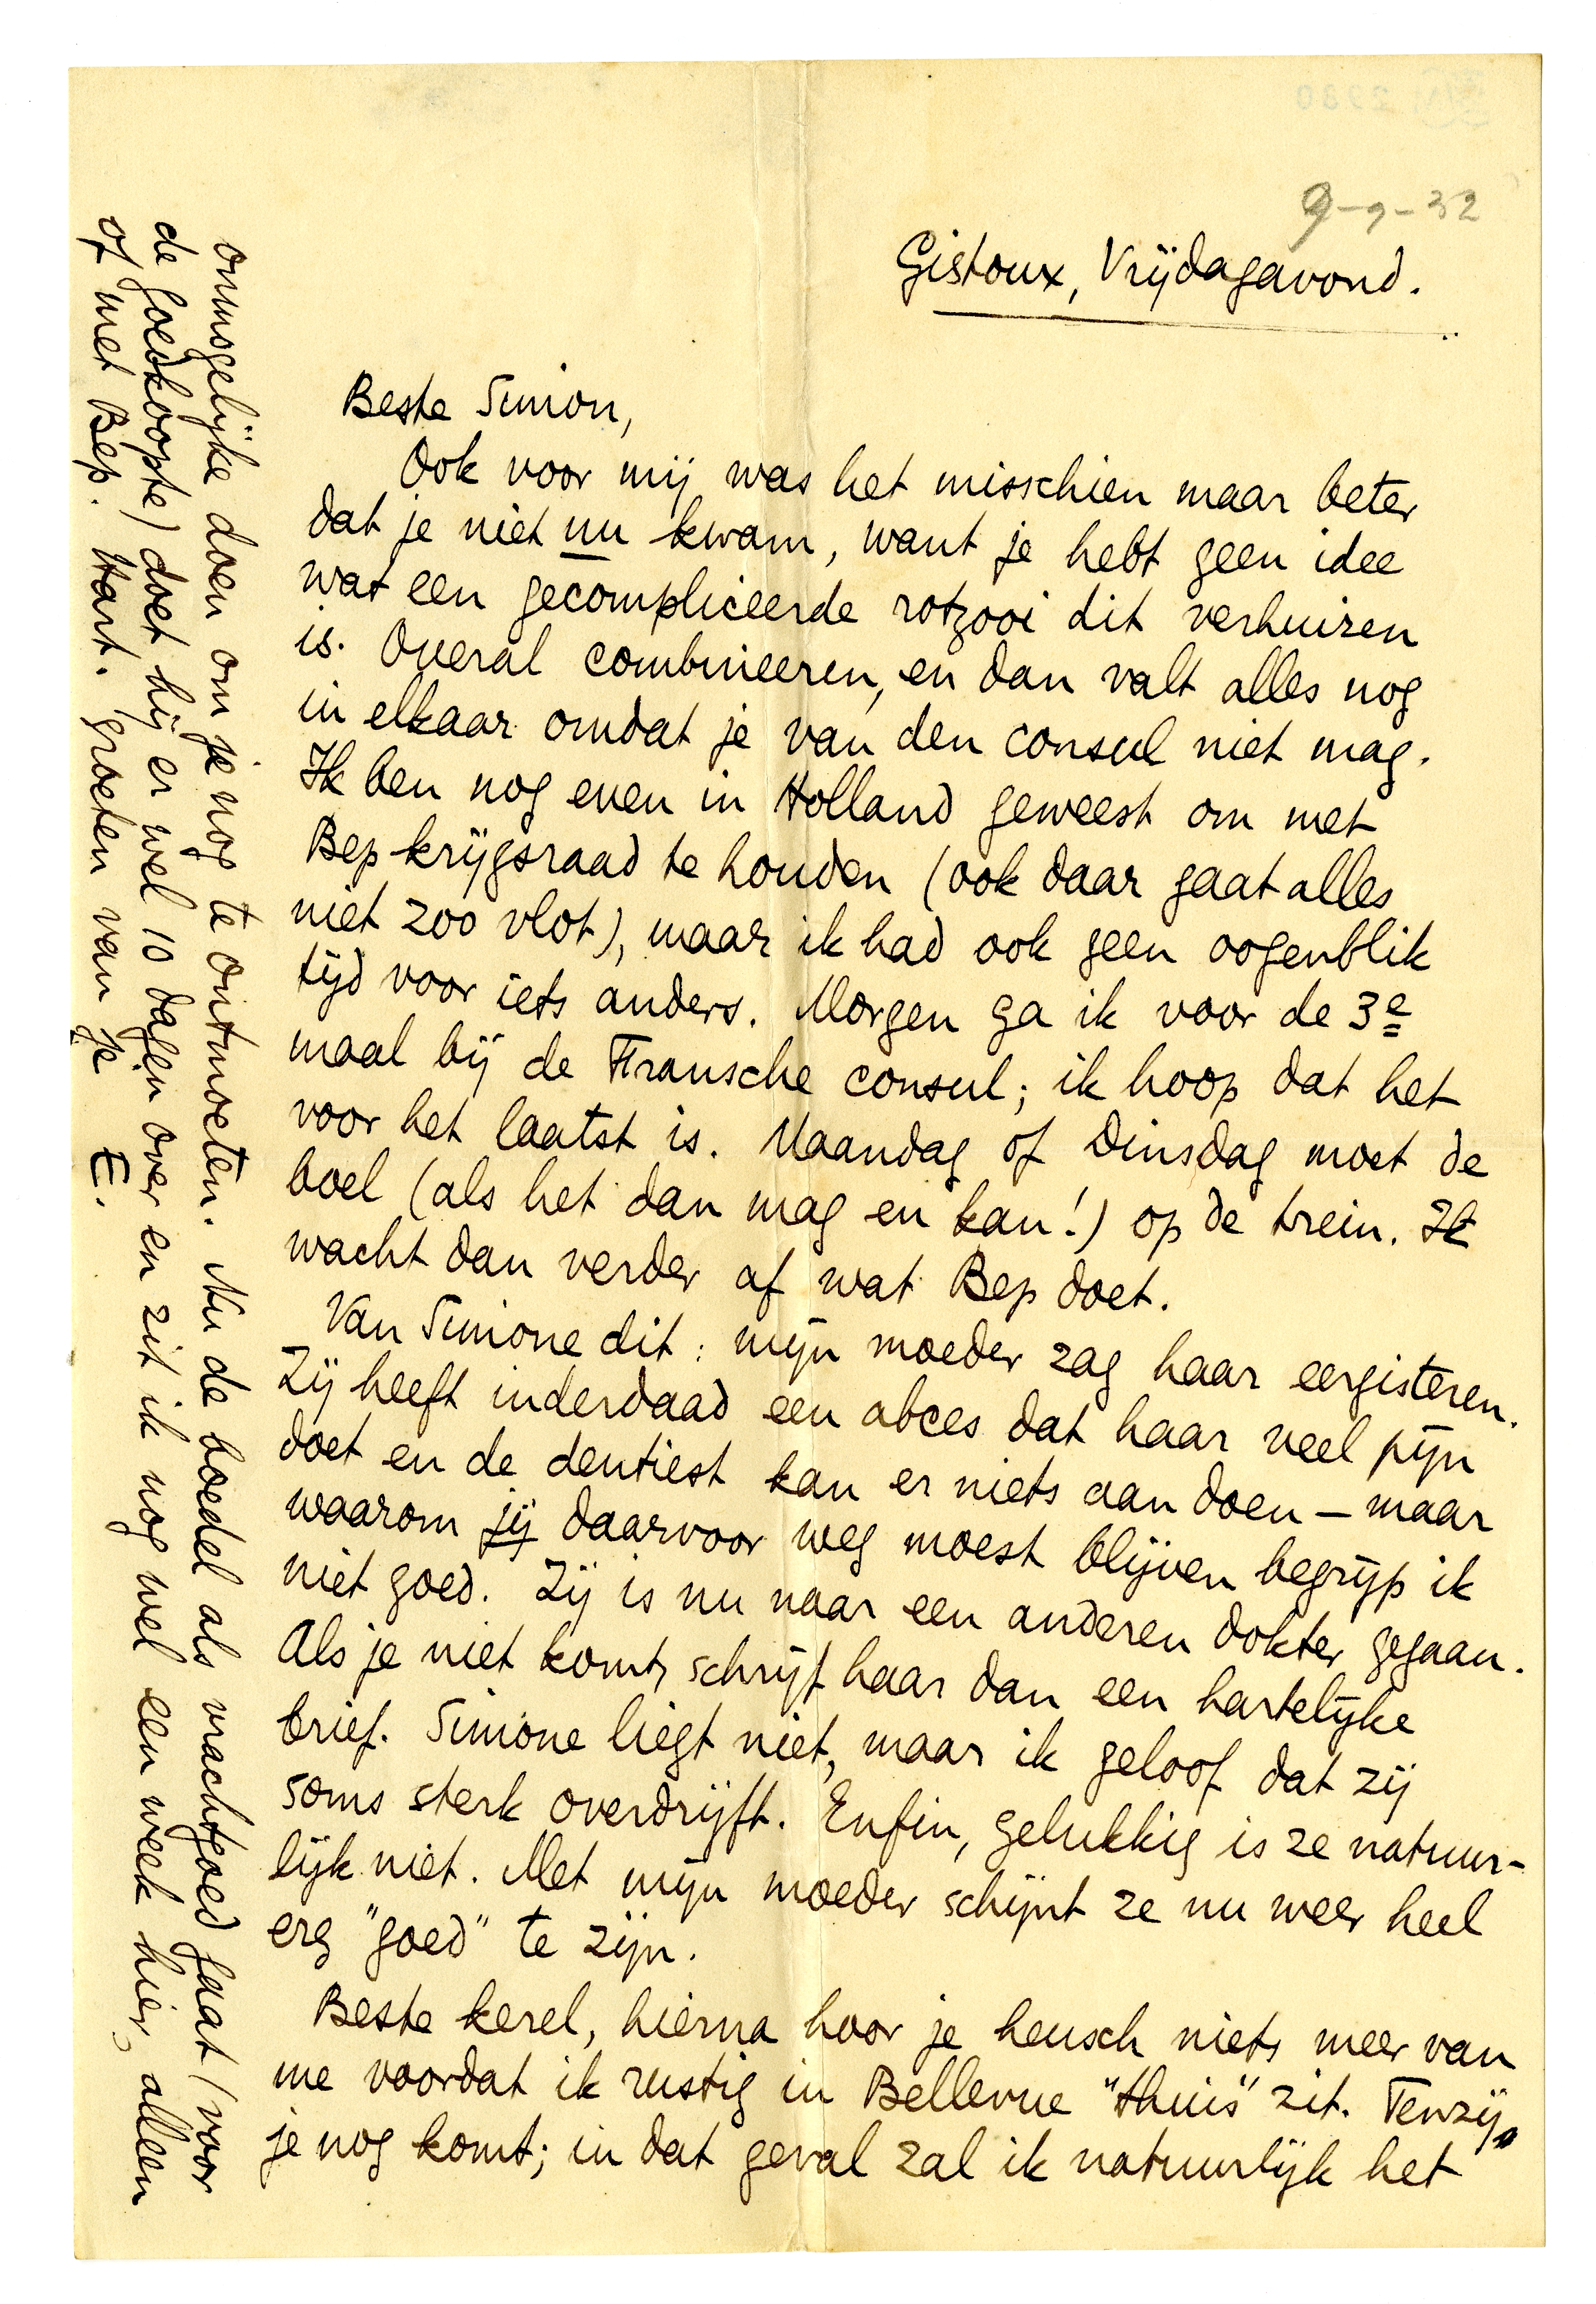 9-9-32
Gistoux, Vrijdagavond.
Beste Simon,
Ook voor mij was het misschien maar beter
dat je niet nu kwam, want je hebt geen idee
wat een gecompliceerde rotzooi dit verhuizen
is. Overal combineeren, en dan valt alles nog
in elkaar omdat je van den consul niet mag.
Ik ben nog even in Holland geweest om met
Bep krijgsraad te houden (ook daar gaat alles
niet zoo vlot), maar ik had ook geen oogenblik
tijd voor iets anders. Morgen ga ik voor de 3e
maal bij de Fransche consul; ik hoop dat het
voor het laatst is. Maandag of Dinsdag moet de
boel (als het dan mag en kan!) op de trein. Ik
wacht dan verder af wat Bep doet.
Van Simone dit: mijn moeder zag haar eergisteren.
Zij heeft inderdaad een abces dat haar veel pijn
doet en de dentiest kan er niets aan doen – maar
waarom jij daarvoor weg moest blijven begrijp ik
niet goed. Zij is nu naar een anderen dokter gegaan.
Als je niet komt, schrijf haar dan een hartelijke
brief. Simone liegt niet, maar ik geloof dat zij
soms sterk overdrijft. Enfin, gelukkig is ze natuur-
lijk niet. Met mijn moeder schijnt ze nu weer heel
erg "goed" te zijn.
Beste kerel, hierna hoor je heusch niets meer van
me voordat ik rustig in Bellevue "thuis" zit. Tenzij
je nog komt; in dat geval zal ik natuurlijk het
onmogelijke doen om je nog te ontmoeten. Nu de boedel als vrachtgoed gaat (voor
de goedkoopte) doet hij er wel 10 dagen over en zit ik nog wel een week hier, alleen
of met Bep. Hart. groeten van je E.